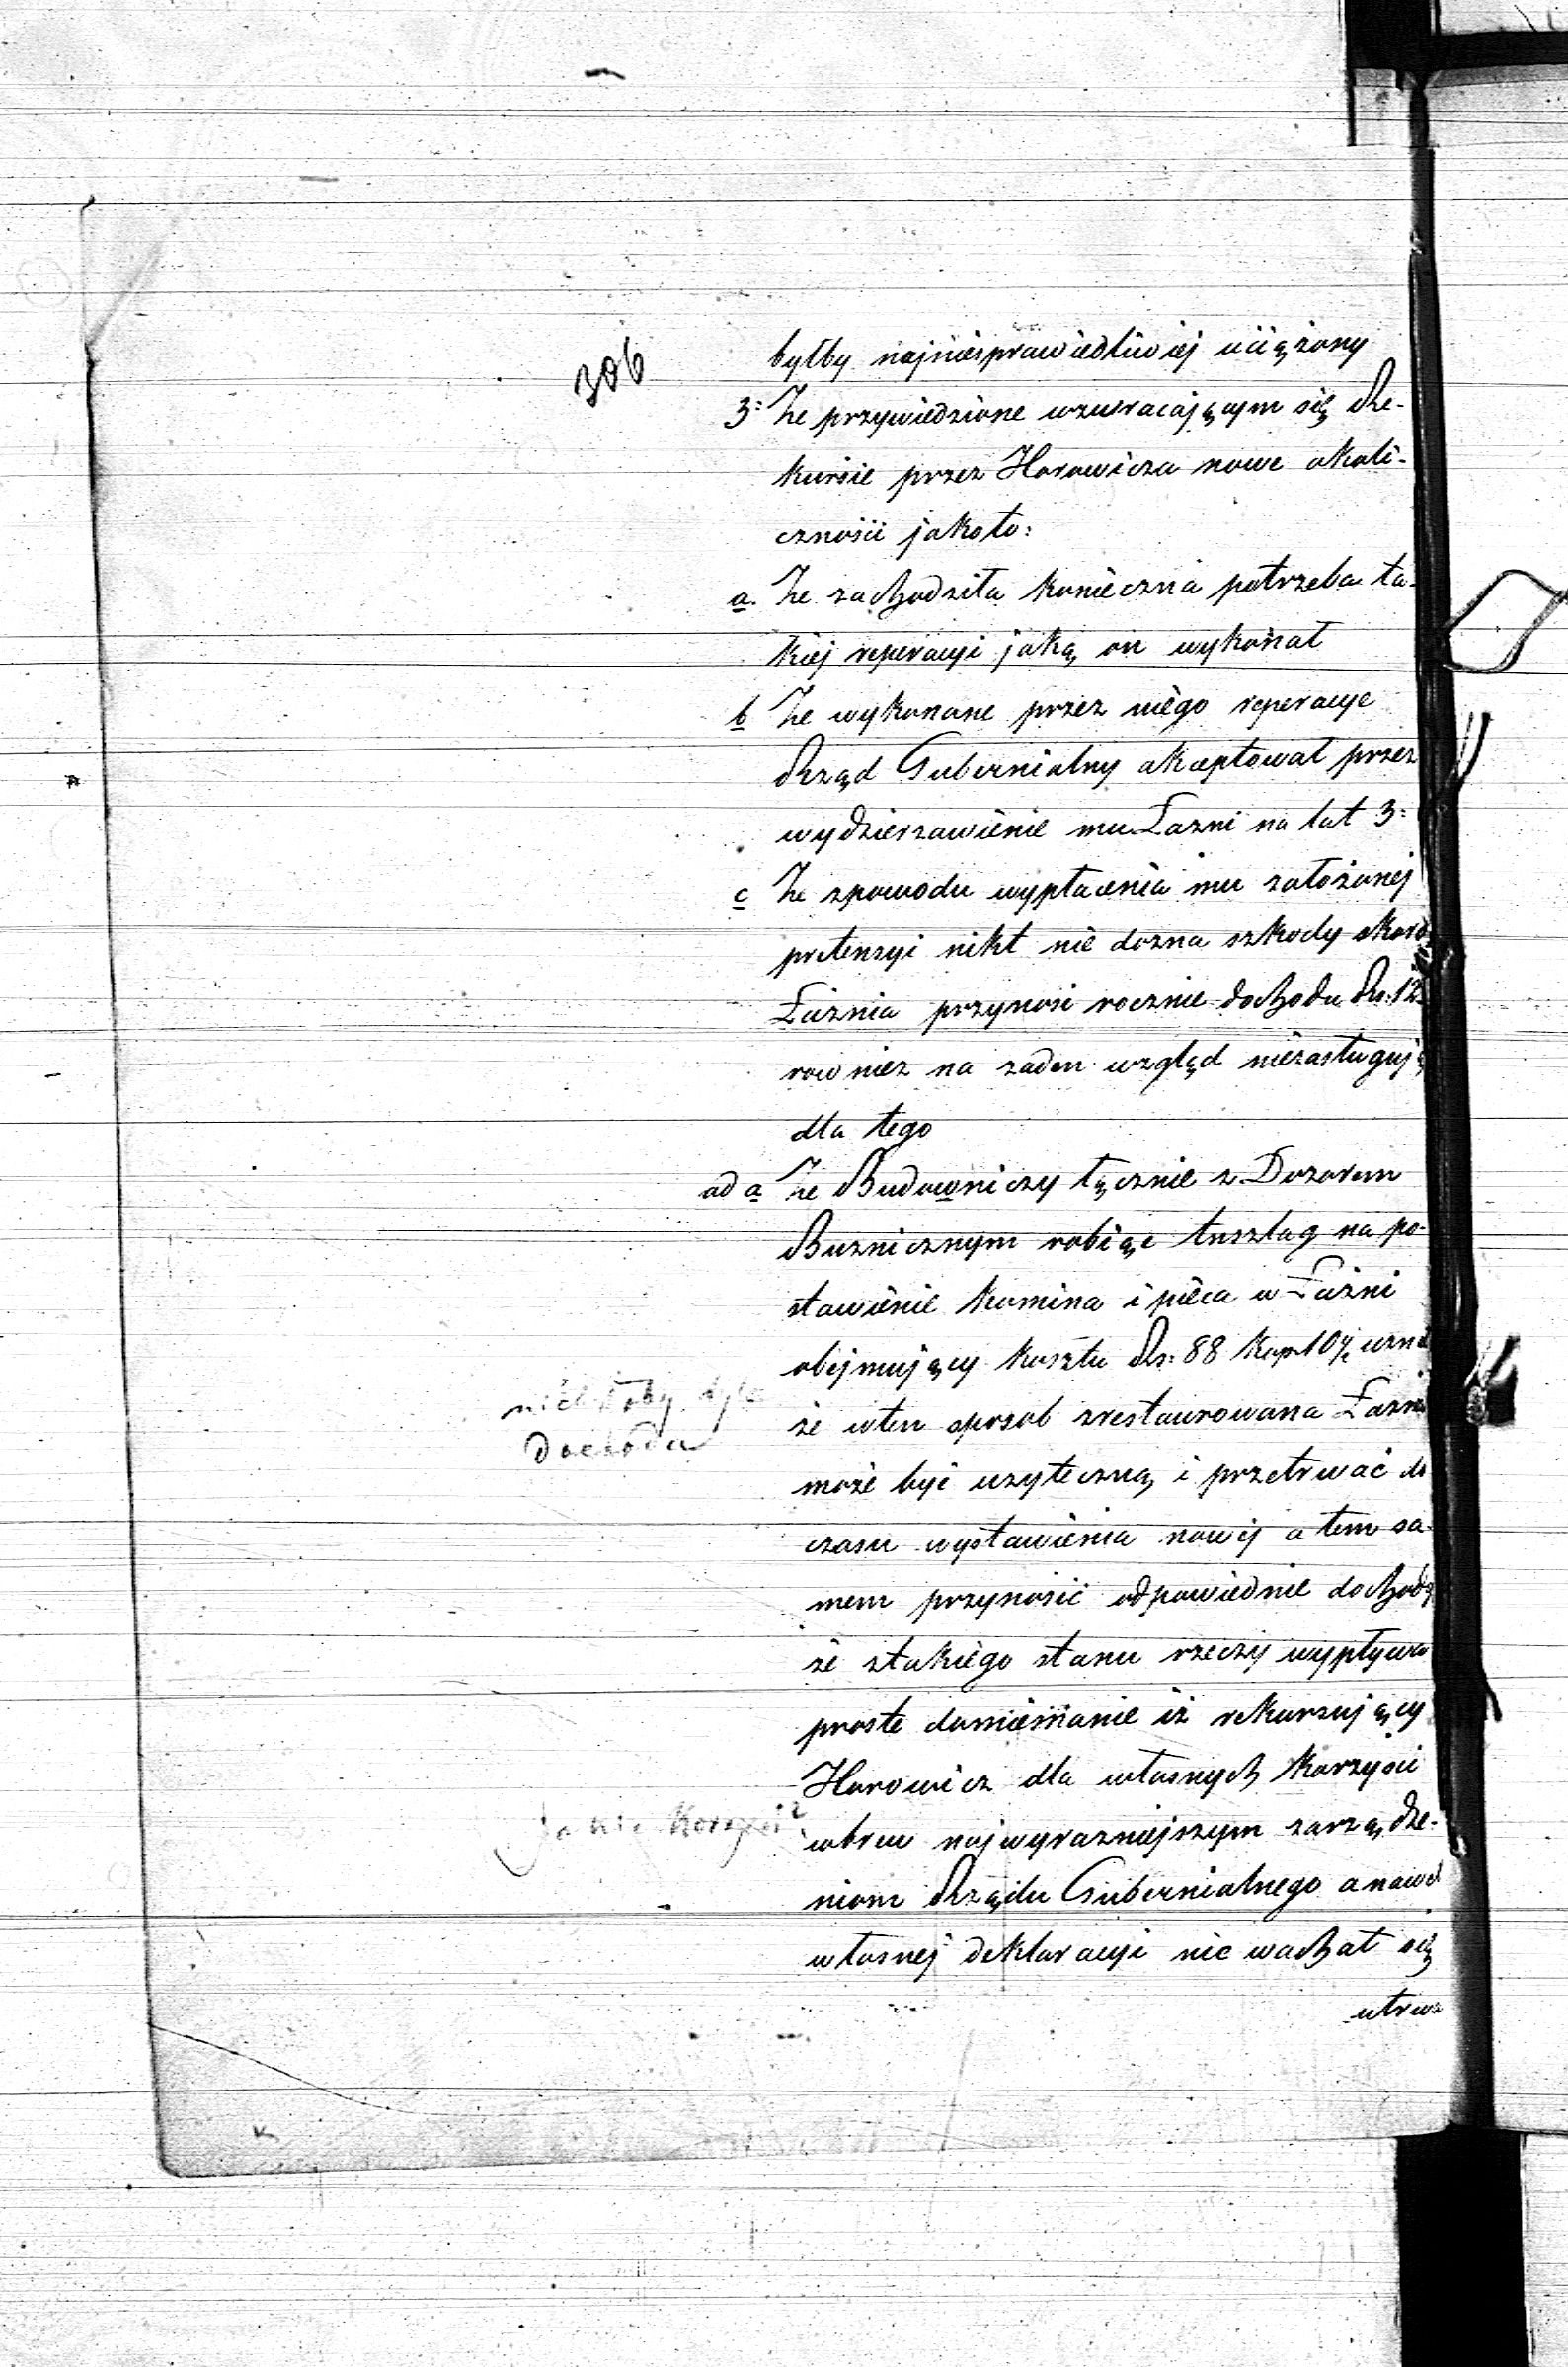 306
byłby najniesprawiedliwiej uciążony
3: Że przywiedzione wzwracającym się Re-
kursie przez Horowicza nowe okoli-
czności jakoto:
a. Że zachodziła konieczna potrzeba ta-
kiej reperacyi jaką on wykonał
b Że wykonane przez niego reperacye
Rząd Gubernialny akceptował przez
wydzierzawienie mu Łazni na lat 3:
c Że zpowodu wypłacenia mu założonej
pretensyi nikt nie dozna szkody skoro
Łaznia przynosi rocznie dochodu Rs: 12
rowniez na zaden wzgląd niezasługują
dla tego
ad a Że Budowniczy łącznie z Dozorem
Buzniczym robiąc Anszlag na po-
stawienie komina i pieca w Łaźni
obejmujący kosztu Rs: 88 kop 10½ uznał
nie byłoby
dochodu
że wten sposob zrestaurowana Łaznia
może być uzyteczną i przetrwać do
czasu wystawienia nowej a tem sa-
mem przynosić odpowiednie dochody
że ztakiego stanu rzeczy wypływa
proste domniemanie iż rekursujący
Horowicz dla własnych korzyści
jakie korzyści?
wbrew najwyrazniejszym zarządze-
niom Rządu Gubernialnego a nawet
własnej deklaracyi nie wachał się
utrwa